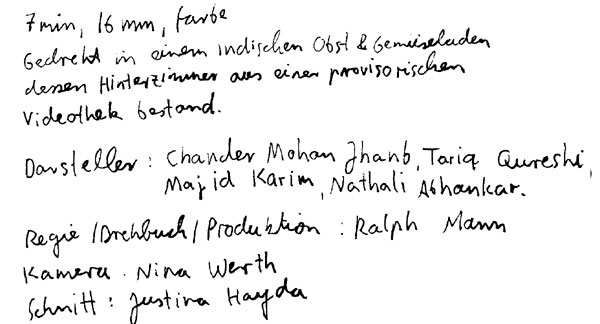 7min, 16 mm, farbe
Gedreht in einem indischen Obst & Gemüseladen
dessen Hinterzimmer aus einer provisorischen
Videothek bestand.
Darsteller : Chander Mohan Jhanb, Tariq Qureshi,
Majid Karim, Nathali Abhankar.
Regie / Drehbuch / Produktion : Ralph Mann
Kamera . Nina Werth
Schnitt : Justina Hayda